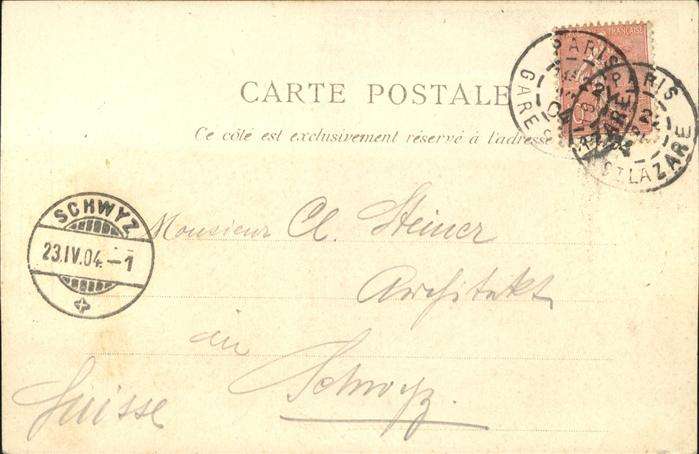 CARTE POSTALE
Ce côté est exclusivement réservé à l'adresse
FRANÇAISE
PARIS
GARE ST LAZARE
PARIS
GARE ST LAZARE
SCHWYZ
23.IV.04.–1
Monsieur Cl. Steiner
Architekt
in
Schwyz
Suisse